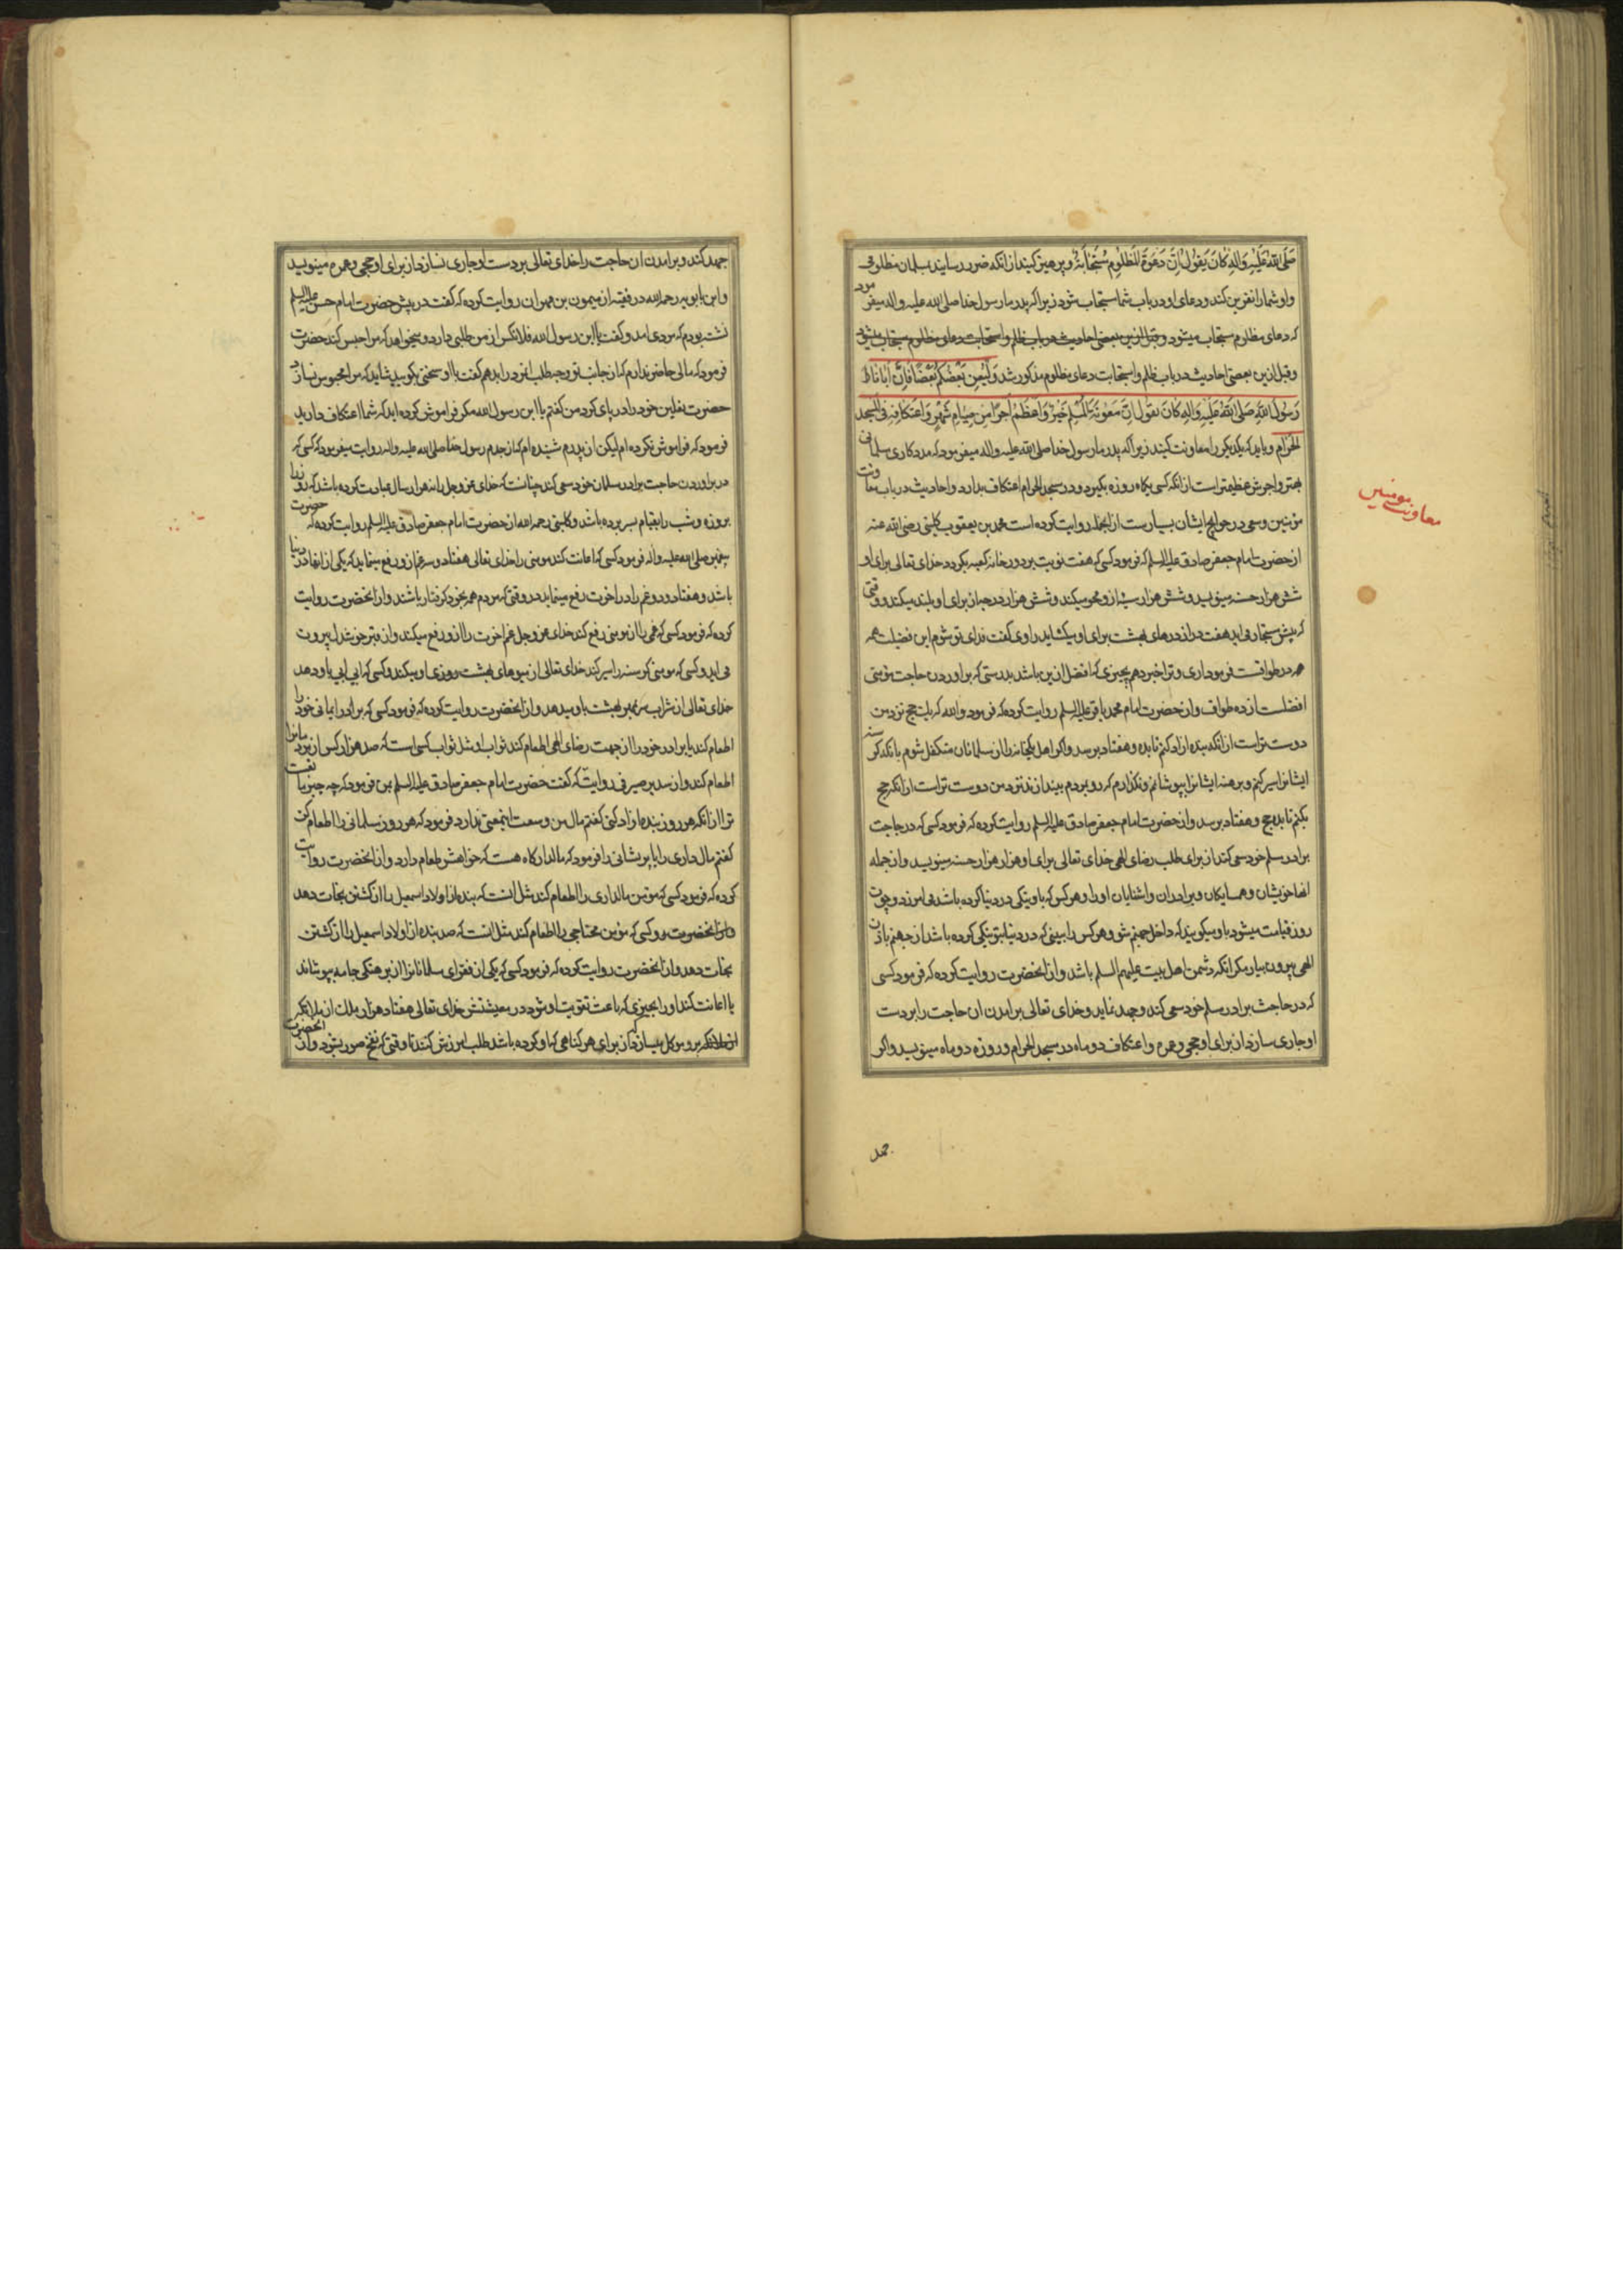 صَلَّى اللهُ عَلَيْهِ وَآلِهِ كَانَ يَقُولُ إِنَّ دَعْوَةَ الْمَظْلُومِ مُسْتَجَابَةٌ وپرهیز کنید از انکه ضرر رسانید بمسلمان مظلومی
واو شما را نفرین کند ودعای او در باب شما مستجاب شود زیرا که پدر ما رسول خدا صلی الله علیه واله میفرمود
که دعای مظلوم مستجاب میشود وقبل ازین بعضی احادیث در باب ظلم واستجابت دعای مظلوم
وقبل ازین بعضی احادیث در باب ظلم واستجابت دعای مظلوم مذکور شد وَلْيُعِنْ بَعْضُكُمْ بَعْضًا فَإِنَّ أَبَانَا
رَسُولَ اللهِ صَلَّى اللهُ عَلَيْهِ وَآلِهِ كَانَ يَقُولُ إِنَّ مَعُونَةَ الْمُسْلِمِ خَيْرٌ وَأَعْظَمُ أَجْرًا مِنْ صِيَامِ شَهْرٍ وَاعْتِكَافِهِ فِي الْمَسْجِدِ
الْحَرَامِ وباید که یکدیکر را معاونت کنید زیرا که پدر ما رسول خدا صلی الله علیه واله میفرمود که مددکاری مسلمانی
بهتر واجرش عظیمتر است از انکه کسی یکماه روزه بکیرد ودر مسجد الحرام اعتکاف بدارد واحادیث در باب معاونت
مؤمنین وسعی در حوایج ایشان بسیارست از انجمله روایت کرده است محمد بن یعقوب کلینی رضی الله عنه
از حضرت امام جعفر صادق علیه السلم که فرمود کسی که هفت نوبت بر دور خانه کعبه بکردد خدای تعالی برای او
شش هزار حسنه مینویسد وشش هزار سیئه ازو محو میکند وشش هزار درجه از برای او بلند میکند ووقتی
که پیش مستجار می اید هفت در از درهای بهشت برای او میکشاید راوی کفت فدای تو شوم این فضیلت همه
در طوافست فرمود اری وترا خبر دهم بچیزی که افضل ازین باشد بدرستی که براوردن حاجت مؤمنی
افضلست از ده طواف واز حضرت امام محمد باقر علیه السلم روایت کرده که فرمود والله که یک حج نزد من
دوست تر است از انکه بنده ازاد کنم تا بده وهفتاد برسد واکر اهل یکخانه را از مسلمانان متکفل شوم بانکه کرسنه
ایشانرا سیر کنم وبرهنه ایشانرا بپوشانم ونکذارم که رو بمردم بیندازند نزد من دوست تر است از انکه حج
بکنم تا بده حج وهفتاد برسد واز حضرت امام جعفر صادق علیه السلم روایت کرده که فرمود کسی که در حاجت
برادر مسلم خود سعی کند از برای طلب رضای الهی خدای تعالی برای او هزار هزار حسنه مینویسد واز جمله
انها خویشان وهمسایکان وبرادران واشنایان او را وهر کس که باو نیکی در دنیا کرده باشد می امرزد وچون
روز قیامت میشود باو میکویند که داخل جهنم شو وهر کس را ببینی که در دنیا بتو نیکی کرده باشد از جهنم باذن
الهی بیرون بیار مکر انکه دشمن اهل بیت علیهم السلم باشد واز انحضرت روایت کرده که فرمود کسی
که در حاجت برادر مسلم خود سعی کند وجهد نماید وخدای تعالی برامدن ان حاجت را بر دست
او جاری سازد از برای او حجی وعمره واعتکاف دو ماه در مسجد الحرام وروزه دو ماه مینویسد واکر
معاونت مومنین
جهد
جهد کند وبرامدن ان حاجت را خدای تعالی بر دست او جاری نسازد از برای او حجی وعمره مینویسد
وابن بابویه رحمه الله در فقیه از میمون بن مهران روایت کرده که کفت در پیش حضرت امام حسن علیه السلم
نشسته بودم که مردی امد وکفت یا ابن رسول الله فلانکس از من طلبی دارد ومیخواهد که مرا حبس کند حضرت
فرمود که مالی حاضر ندارم که از جانب تو وجه طلب انمرد را بدهم کفت با او سخنی بکویید شاید که مرا محبوس نسازد
حضرت نعلین خود را در پای کرد من کفتم یا ابن رسول الله مکر فراموش کرده اید که شما اعتکاف دارید
فرمود که فراموش نکرده ام لیکن از پدرم شنیده ام که از جدم رسول خدا صلی الله علیه واله روایت میفرمود که کسی که
در براوردن حاجت برادر مسلمان خود سعی کند چنانست که خدای عز وجل را نه هزار سال عبادت کرده باشد که روزها
بروزه وشب را بقیام بسر برده باشد وکلینی رحمه الله از حضرت امام جعفر صادق علیه السلم روایت کرده که حضرت
پیغمبر صلی الله علیه واله فرمود کسی که اعانت کند مومنی را خدای تعالی هفتاد وسه غم ازو رفع مینماید که یکی از انها در دنیا
باشد وهفتاد ودو غم را در اخرت رفع مینماید در وقتی که مردم همه بخود کرفتار باشند واز انحضرت روایت
کرده که فرمود کسی که غمی را از مومنی رفع کند خدای عز وجل غم اخرت را ازو رفع میکند واز قبر خوشدل بیرون
می اید وکسی که مومنی کرسنه را سیر کند خدای تعالی از میوهای بهشت روزی او میکند وکسی که ابی باو دهد
خدای تعالی از شراب سر بمهر بهشت باو میدهد واز انحضرت روایت کرده که فرمود کسی که برادر ایمانی خود را
اطعام کند یا برادر خود را از جهت رضای الهی اطعام کند ثواب او مثل ثواب کسی است که صد هزار کس از مردمانرا
اطعام کند واز سدیر صیرفی روایت که کفت حضرت امام جعفر صادق علیه السلم بمن فرمود که چه چیز مانعست
ترا از انکه هر روز بنده ازاد کنی کفتم مال من وسعت اینمعنی ندارد فرمود که هر روز مسلمانی را اطعام کن
کفتم مال داری را یا پریشانی را فرمود که مالدار کاه هست که خواهش طعام دارد واز انحضرت روایت
کرده که فرمود کسی که مؤمن مالداری را اطعام کند مثل انست که بنده از اولاد اسمعیل را از کشتن نجات دهد
وکسی که مؤمن محتاجی را اطعام کند مثل انست که صد بنده از اولاد اسمعیل را از کشتن
نجات دهد واز انحضرت روایت کرده که فرمود کسی که یکی از فقرای مسلمانانرا از برهنکی جامه بپوشاند
یا اعانت کند او را بچیزی که باعث تقویت او شود در معیشتش خدای تعالی هفتاد هزار ملک از ملائکه
برو موکل میسازد که از برای هر کناهی که او کرده باشد طلب امرزش کنند تا وقتی که نفخ صور بشود واز انحضرت